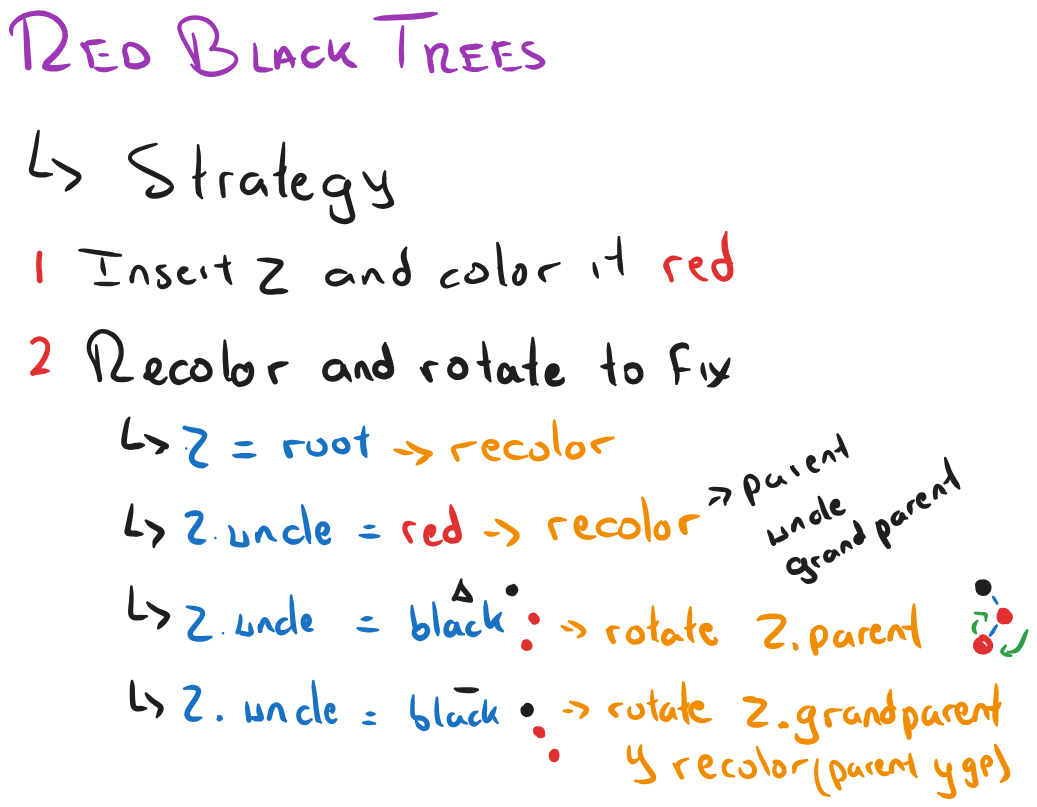 RED BLACK TREES
↳ Strategy
1 Insert Z and color it red
2 Recolor and rotate to fix
↳ Z = root → recolor
↳ Z.uncle = red → recolor → parent
uncle
grandparent
↳ Z.uncle = black △ → rotate Z.parent
↳ Z.uncle = black – → rotate Z.grandparent
y recolor (parent y gp)